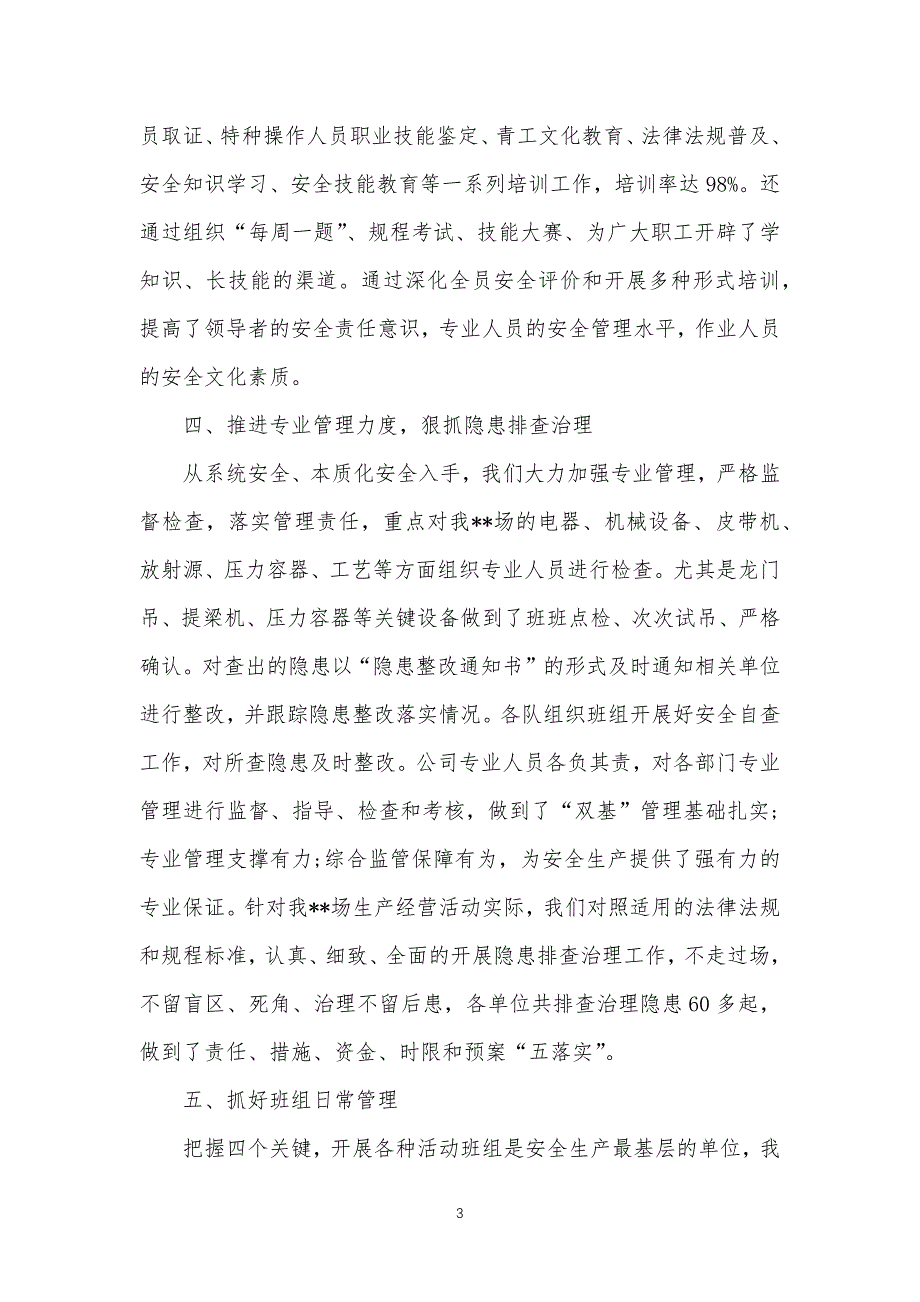 员取证、特种操作人员职业技能鉴定、青工文化教育、法律法规普及、
安全知识学习、安全技能教育等一系列培训工作，培训率达 98%。还
通过组织“每周一题”、规程考试、技能大赛、为广大职工开辟了学
知识、长技能的渠道。通过深化全员安全评价和开展多种形式培训，
提高了领导者的安全责任意识，专业人员的安全管理水平，作业人员
的安全文化素质。
四、推进专业管理力度，狠抓隐患排查治理
从系统安全、本质化安全入手，我们大力加强专业管理，严格监
督检查，落实管理责任，重点对我**场的电器、机械设备、皮带机、
放射源、压力容器、工艺等方面组织专业人员进行检查。尤其是龙门
吊、提梁机、压力容器等关键设备做到了班班点检、次次试吊、严格
确认。对查出的隐患以“隐患整改通知书”的形式及时通知相关单位
进行整改，并跟踪隐患整改落实情况。各队组织班组开展好安全自查
工作，对所查隐患及时整改。公司专业人员各负其责，对各部门专业
管理进行监督、指导、检查和考核，做到了“双基”管理基础扎实;
专业管理支撑有力;综合监管保障有为，为安全生产提供了强有力的
专业保证。针对我**场生产经营活动实际，我们对照适用的法律法规
和规程标准，认真、细致、全面的开展隐患排查治理工作，不走过场，
不留盲区、死角、治理不留后患，各单位共排查治理隐患 60 多起，
做到了责任、措施、资金、时限和预案“五落实”。
五、抓好班组日常管理
把握四个关键，开展各种活动班组是安全生产最基层的单位，我
3